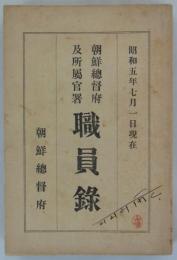 昭和五年七月一日現在
朝鮮總督府
及所屬官署
職員錄
朝鮮總督府